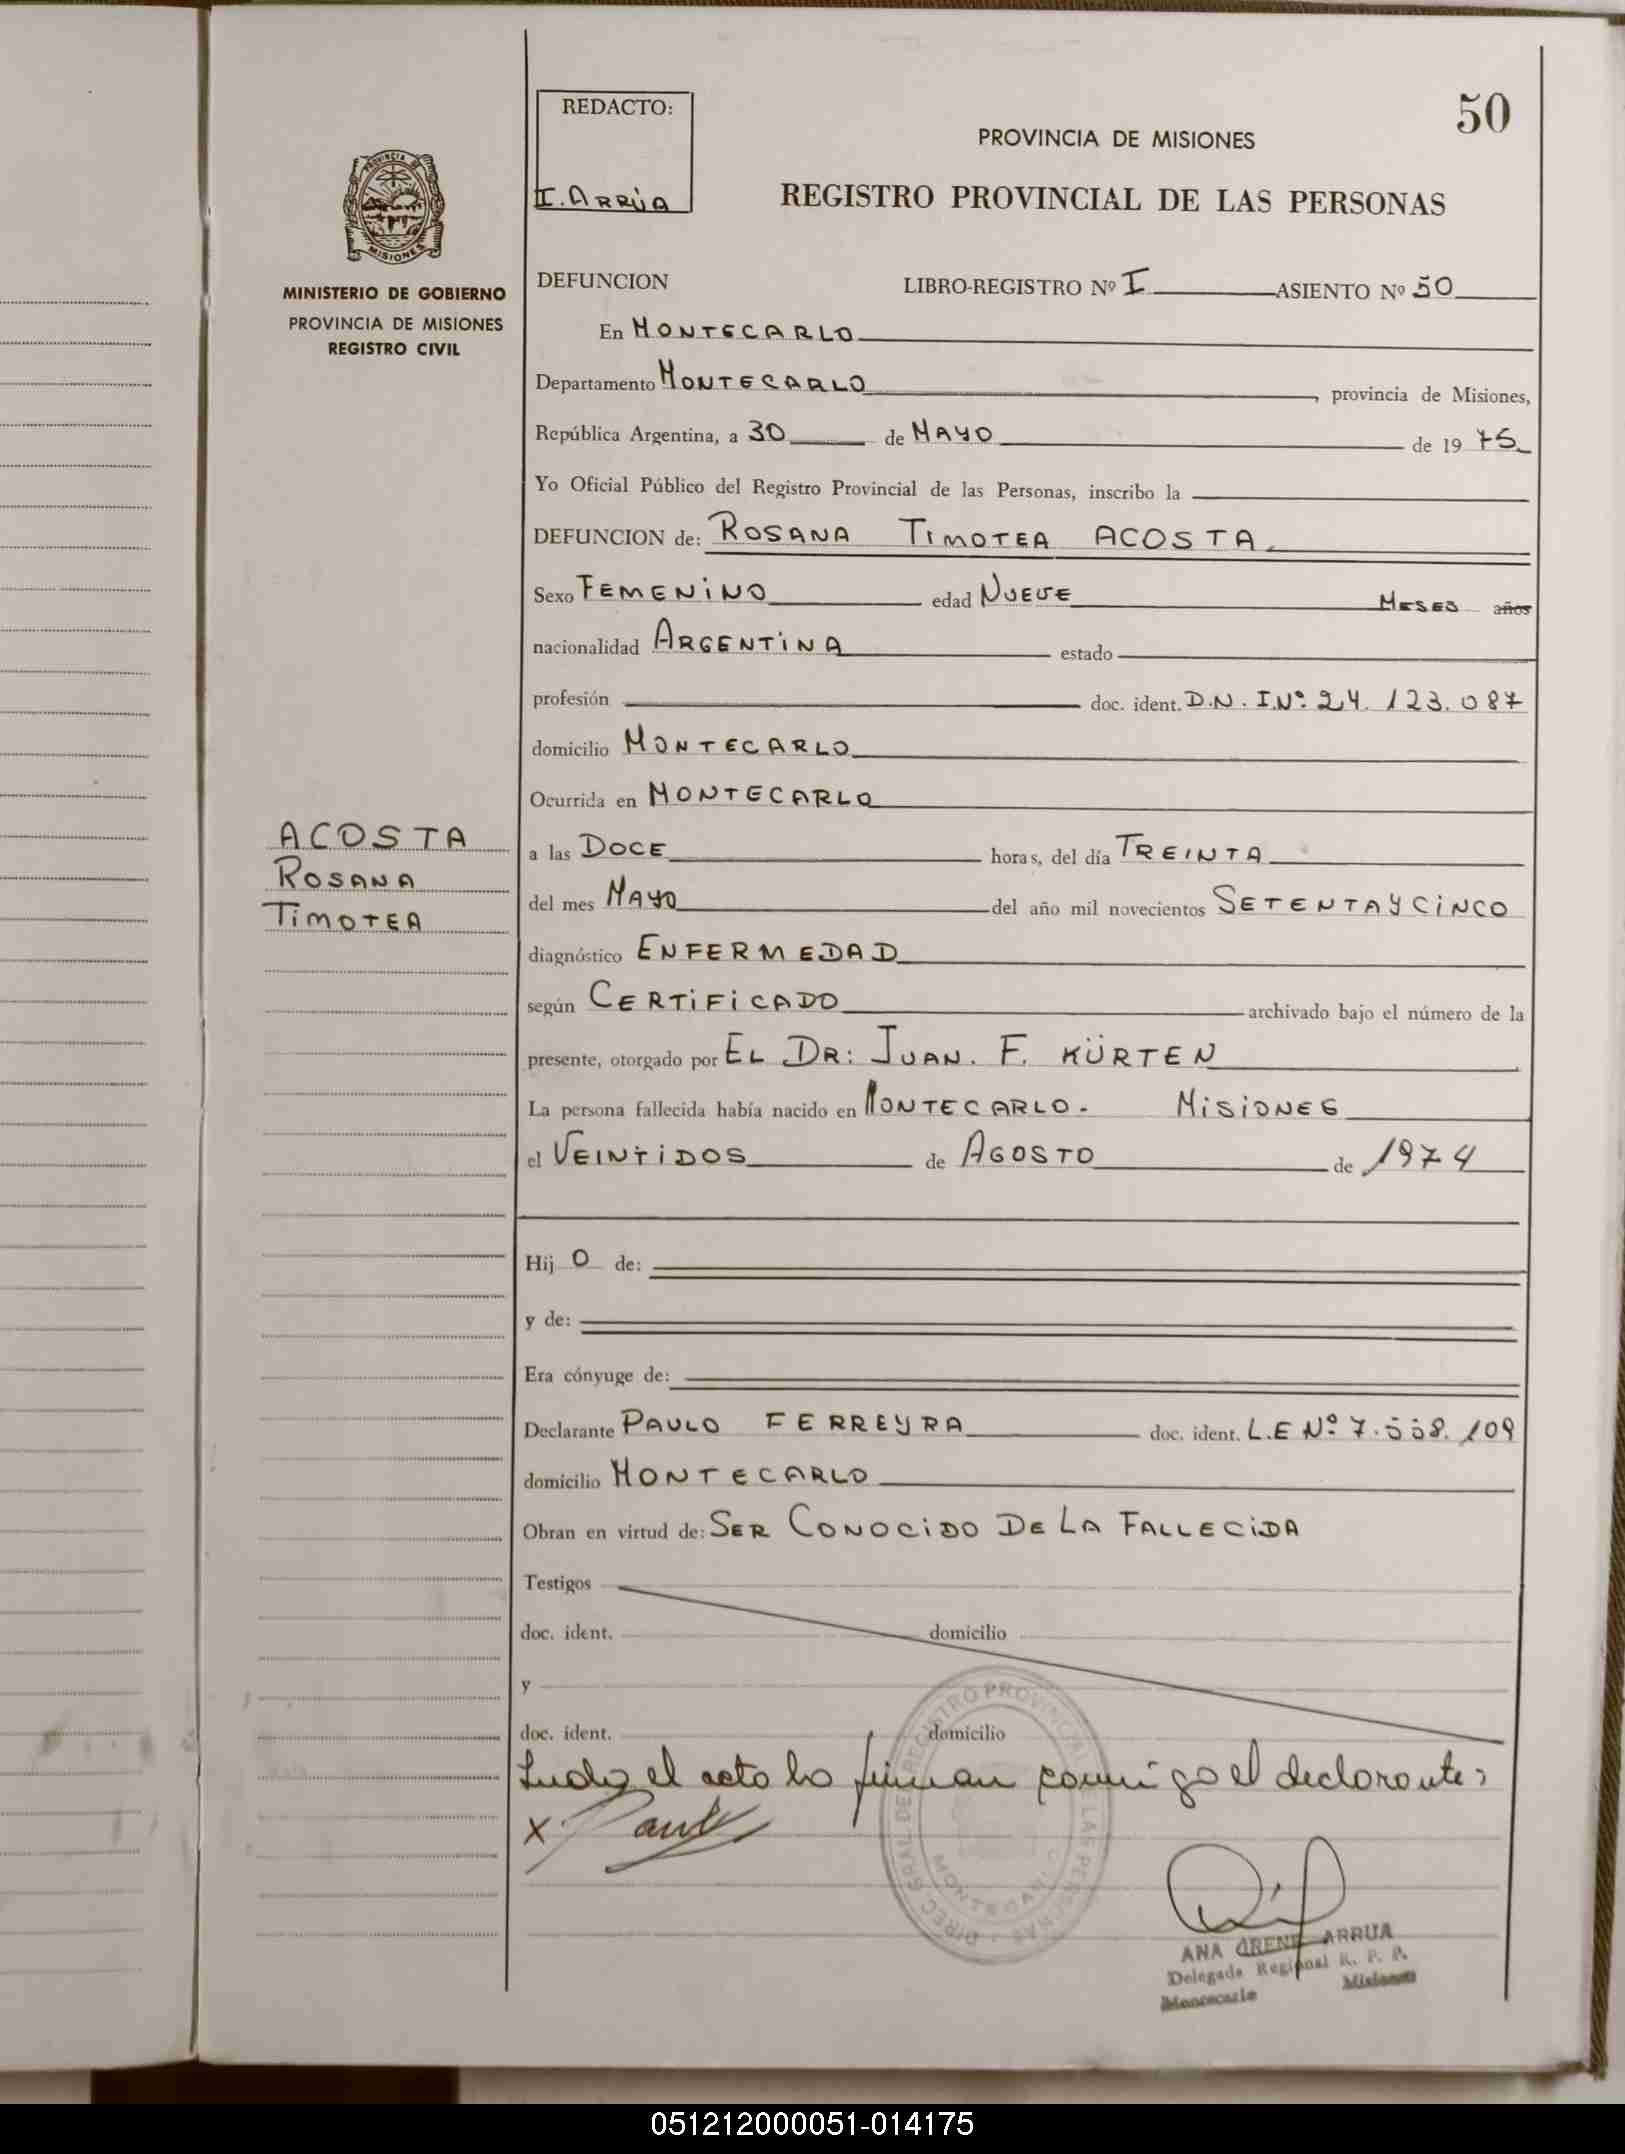 50
REDACTO:
I. ARRÚA
PROVINCIA DE MISIONES
REGISTRO PROVINCIAL DE LAS PERSONAS
PROVINCIA DE
MISIONES
MINISTERIO DE GOBIERNO
PROVINCIA DE MISIONES
REGISTRO CIVIL
DEFUNCION LIBRO-REGISTRO Nº I ASIENTO Nº 50
En MONTECARLO
Departamento MONTECARLO, provincia de Misiones,
República Argentina, a 30 de MAYO de 1975
Yo Oficial Público del Registro Provincial de las Personas, inscribo la
DEFUNCION de: ROSANA TIMOTEA ACOSTA.
Sexo FEMENINO edad NUEVE MESES años
nacionalidad ARGENTINA estado
profesión doc. ident. D.N.I.Nº 24.123.087
domicilio MONTECARLO
Ocurrida en MONTECARLO
ACOSTA
ROSANA
TIMOTEA
a las DOCE horas, del día TREINTA
del mes MAYO del año mil novecientos SETENTAYCINCO
diagnóstico ENFERMEDAD
según CERTIFICADO archivado bajo el número de la
presente, otorgado por EL DR: JUAN. F. KÜRTEN
La persona fallecida había nacido en MONTECARLO- MISIONES
el VEINTIDOS de AGOSTO de 1974
Hij O de:
y de:
Era cónyuge de:
Declarante PAULO FERREYRA doc. ident. L.E Nº 7.558.109
domicilio MONTECARLO
Obran en virtud de: SER CONOCIDO DE LA FALLECIDA
Testigos
doc. ident. domicilio
y
doc. ident. domicilio
Leído el acto lo firman conmigo el declarante;
X
DIREC. GRAL. DE REGISTRO PROVINCIAL DE LAS PERSONAS
MONTECARLO
ANA IRENE ARRUA
Delegada Regional R. P. P.
Montecarlo Misiones
051212000051-014175